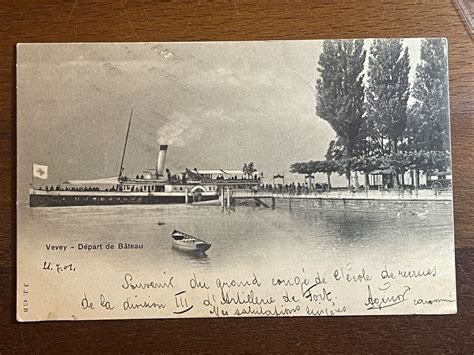 Vevey - Départ de Bâteau
21.7.01.
Souvenir du grand congé de l'école de recrues
de la division III d'Artillerie de Fort.
Nos salutations sincères